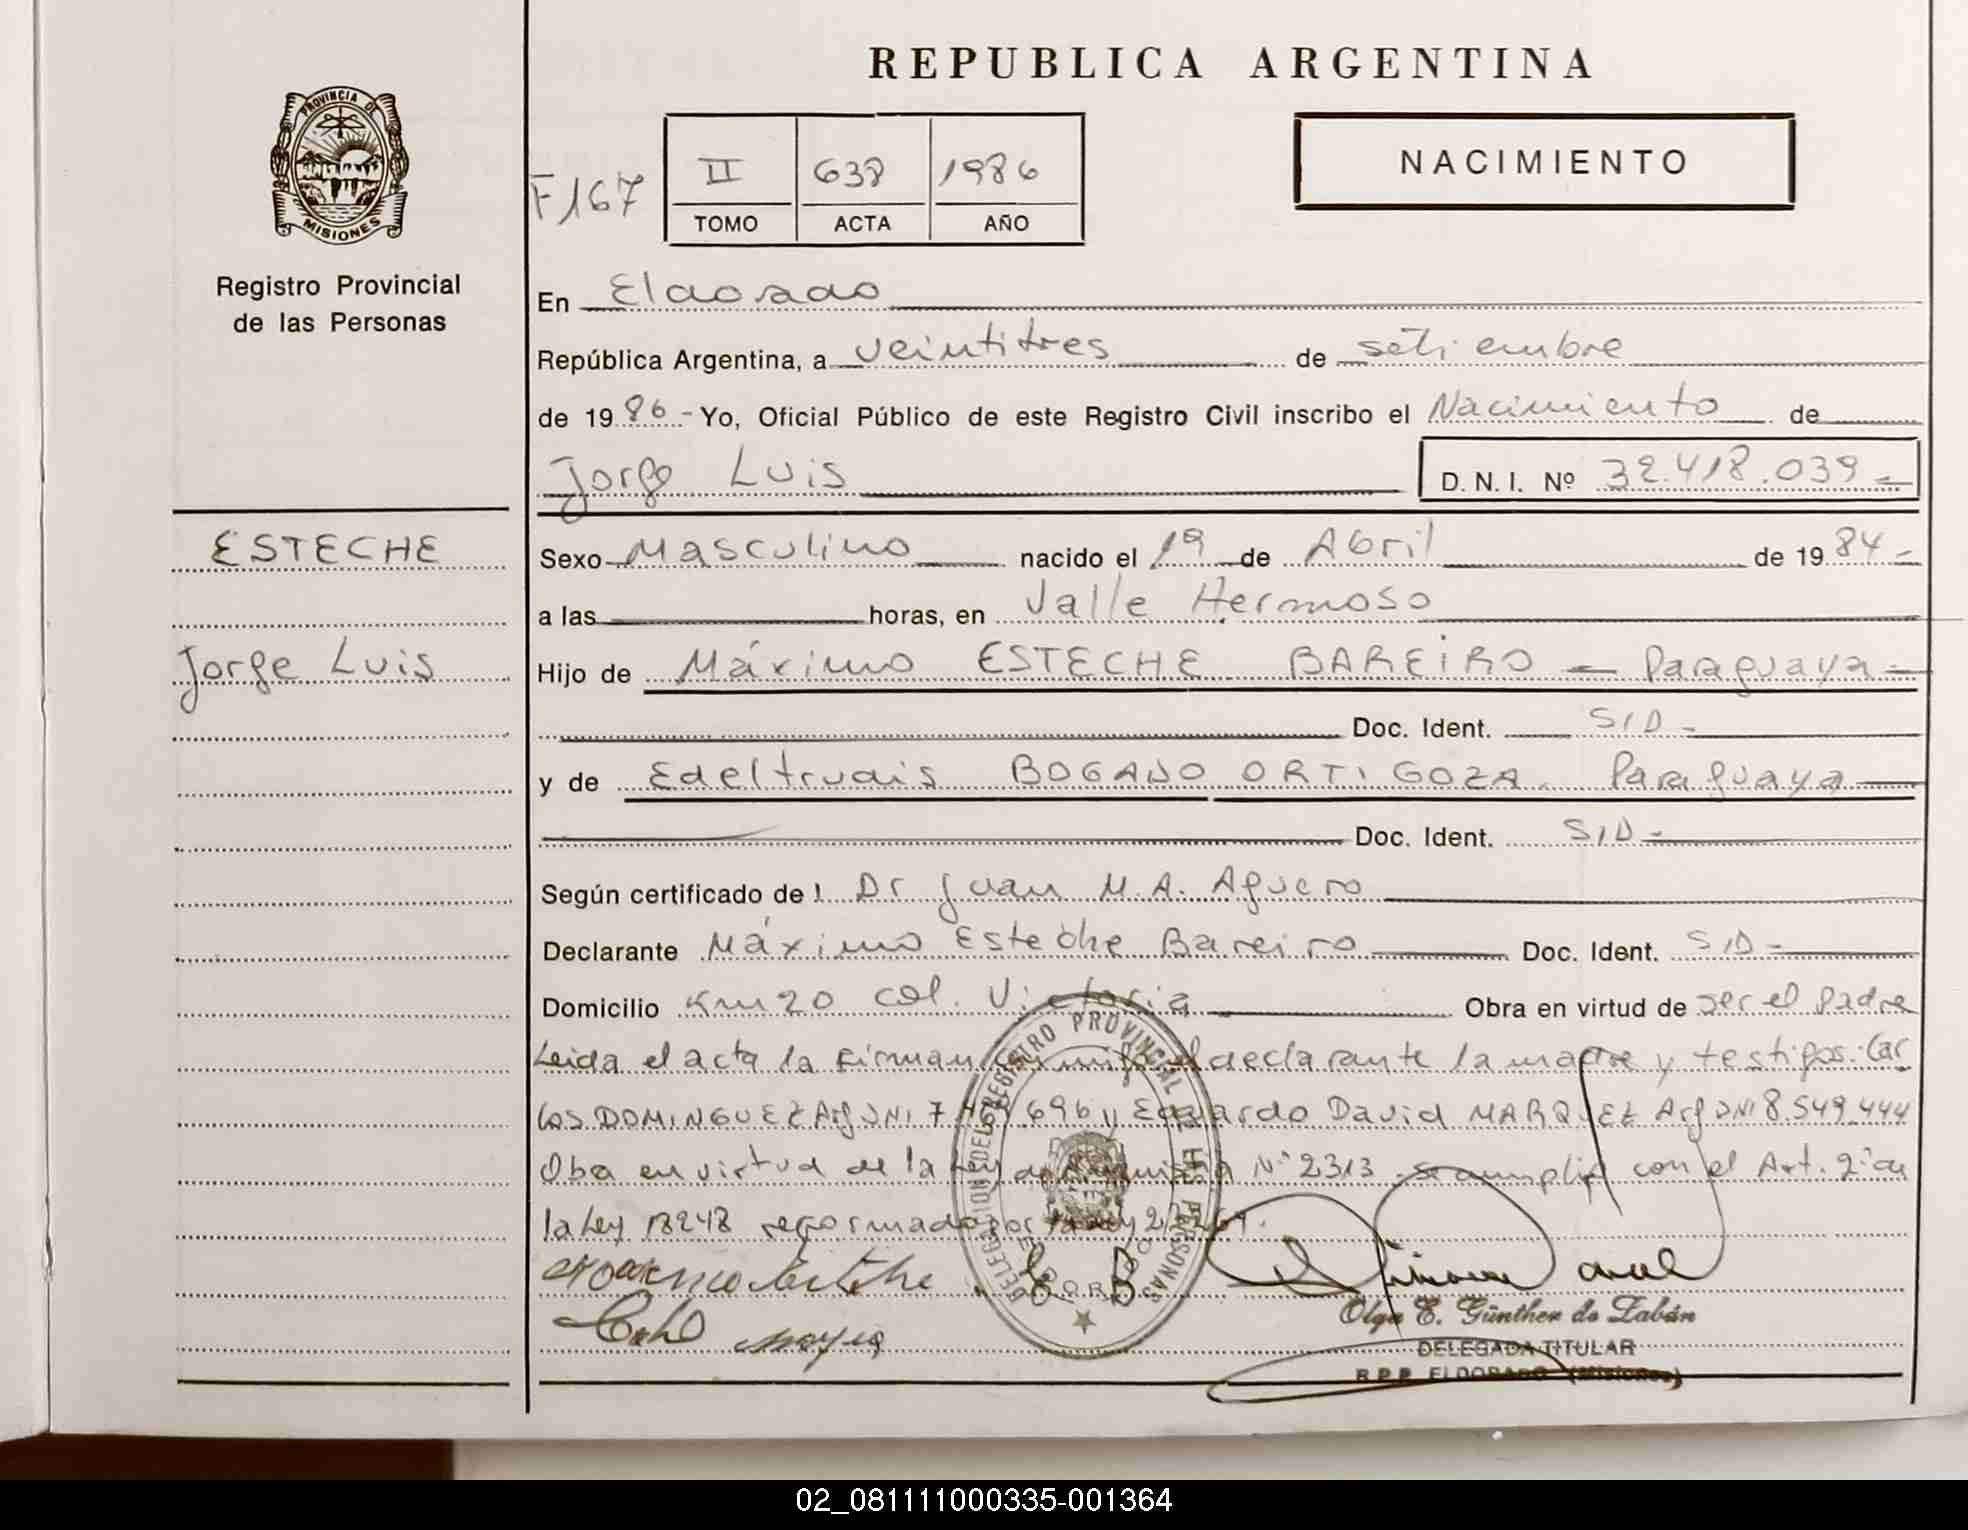 REPUBLICA ARGENTINA
PROVINCIA DE
MISIONES
Registro Provincial
de las Personas
F167
II 638 1986
TOMO ACTA AÑO
NACIMIENTO
En Eldorado
República Argentina, a veintitres de setiembre
de 1986.- Yo, Oficial Público de este Registro Civil inscribo el Nacimiento de
Jorge Luis D. N. I. Nº 32.418.039-
ESTECHE
Jorge Luis
Sexo Masculino nacido el 19 de Abril de 1984-
a las horas, en Valle Hermoso
Hijo de Máximo ESTECHE BAREIRO - Paraguaya -
Doc. Ident. S/D -
y de Edeltrudis BOGADO ORTIGOZA. Paraguaya
Doc. Ident. S/D -
Según certificado de l Dr Juan M. A. Aguero
Declarante Máximo Esteche Bareiro Doc. Ident. S/D -
Domicilio Km 20 col. Victoria Obra en virtud de ser el padre
Leida el acta la firman conmigo el declarante la madre y testigos: Car
los DOMINGUEZ Arg DNI 7 696 y Eduardo David MARQUEZ Arg DNI 8.549.444
Oba en virtud de la Ley de Amnistia Nº 2313 se cumplio con el Art. 2º de
la Ley 18248 reformado por la Ley
DELEGACION DEL REGISTRO PROVINCIAL DE LAS PERSONAS
ELDORADO
Olga E. Günther de Zabán
DELEGADA TITULAR
R.P.P. ELDORADO (Misiones)
02_081111000335-001364